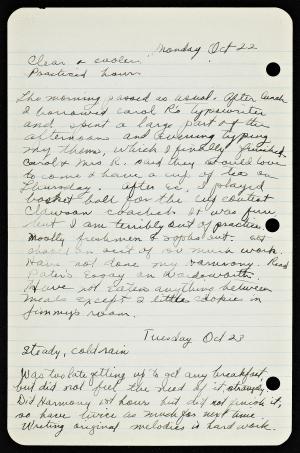 Monday Oct 22
Clear & cooler
Practiced hour.
The morning passed as usual. After lunch
I borrowed Carol R's typewriter
and spent a large part of the
afternoon and evening typing
my theme, which I finally finished.
Carol & Mrs R. said they would love
to come & have a cup of tea on
Thursday. After Ec. I played
basket ball for the cup contest
Clawson coached. It was fun
but I am terribly out of practice.
Mostly freshmen & sophs out.
should an out of so much work.
Have not done my Harmony. Read
Pater's Essay on Wordsworth.
Have not eaten anything between
meals except 2 little cookies in
Jimmy's room.
Tuesday Oct 23
Steady, cold rain
Was too late getting up to get any breakfast
but did not feel the need of it, strangely.
Did Harmony hour but did not finish it,
so have twice as much for next time.
Writing original melodies is hard work.